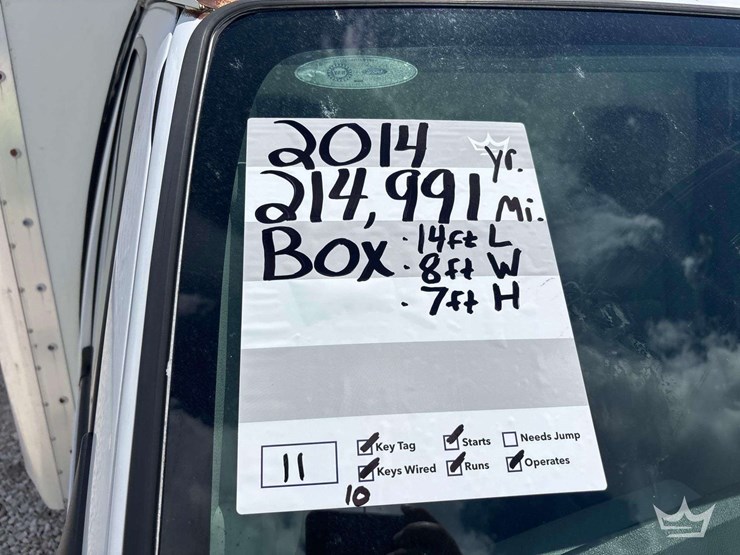 2014 yr.
214,991 Mi.
Box · 14ft L
· 8ft W
· 7ft H
11
Key Tag
Starts
Needs Jump
Keys Wired
Runs
Operates
10